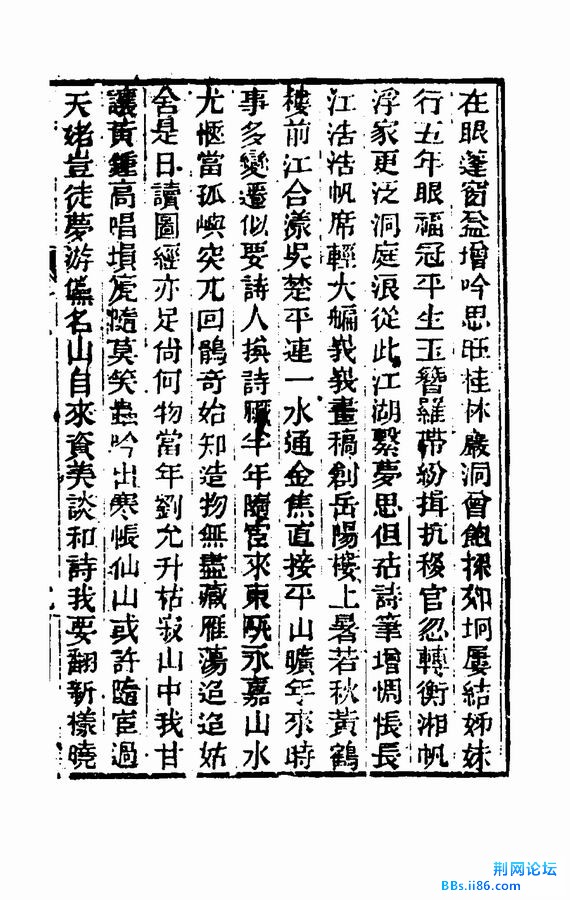 在眼蓬窗益增吟思旺桂林巖洞曾飽探郊坰屢結姊妹
行五年眼福冠平生玉簪羅帶紛揖抗移官忽轉衡湘帆
浮家更泛洞庭浪從此江湖繫夢思但祜詩筆增惆悵長
江浩浩帆席輕大艑峩峩畫稿創岳陽樓上暑若秋黃鶴
樓前江合漾吳楚平連一水通金焦直接平山曠年來時
事多變遷似要詩人換詩半年隨宦來東甌永嘉山水
尤愜當孤嶼突兀回鶻奇始知造物無盡藏雁蕩迢迢姑
舍是日讀圖經亦足尙何物當年劉允升枯寂山中我甘
讓黃鍾高唱塤箎隨莫笑蟲吟出寒帳仙山或許隨宦過
天姥豈徒夢游儻名山自來資美談和詩我要翻新樣曉
荆网论坛
BBs.ii86.com